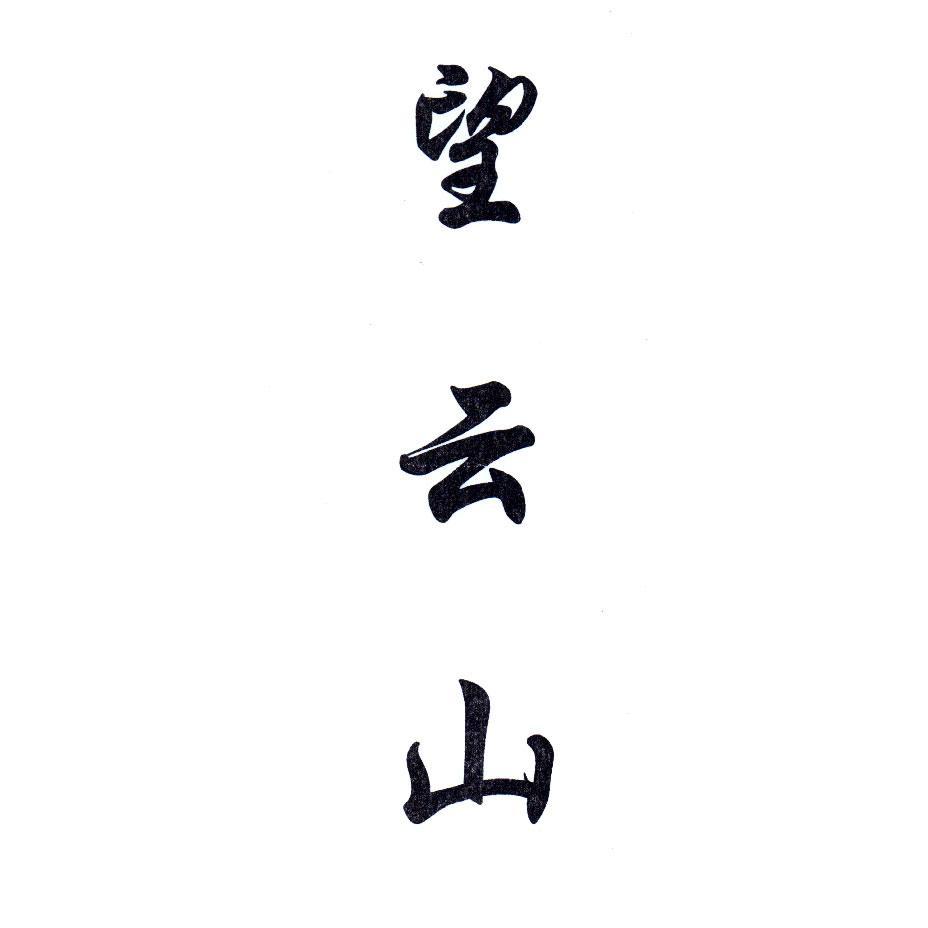 望云山